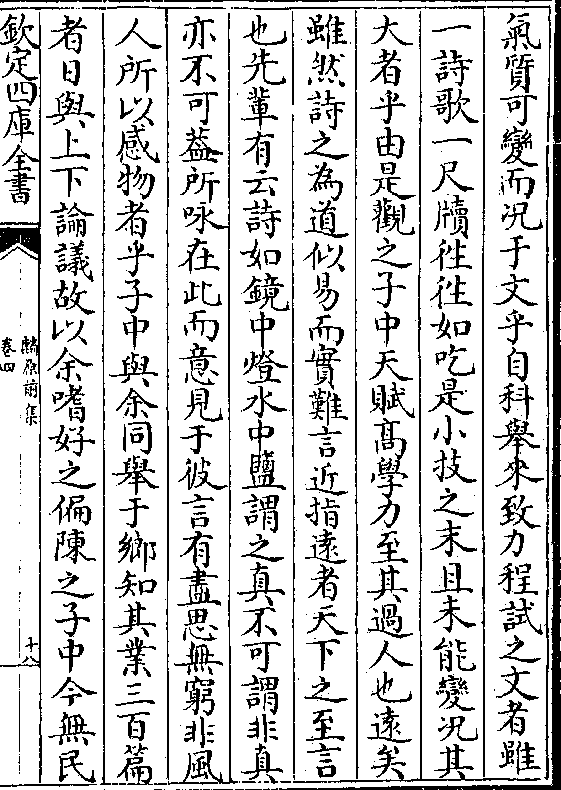 氣質可變而况于文乎自科舉來致力程試之文者雖
一詩歌一尺牘徃徃如吃是小技之末且未能變况其
大者乎由是觀之子中天賦髙學力至其過人也遠矣
雖然詩之為道似易而實難言近指遠者天下之至言
也先輩有云詩如鏡中燈水中鹽謂之真不可謂非真
亦不可葢所咏在此而意見于彼言有盡思無窮非風
人所以感物者乎子中與余同舉于鄉知其業三百篇
者日與上下論議故以余嗜好之偏陳之子中今無民
欽定四庫全書
麟原前集
卷四
十八